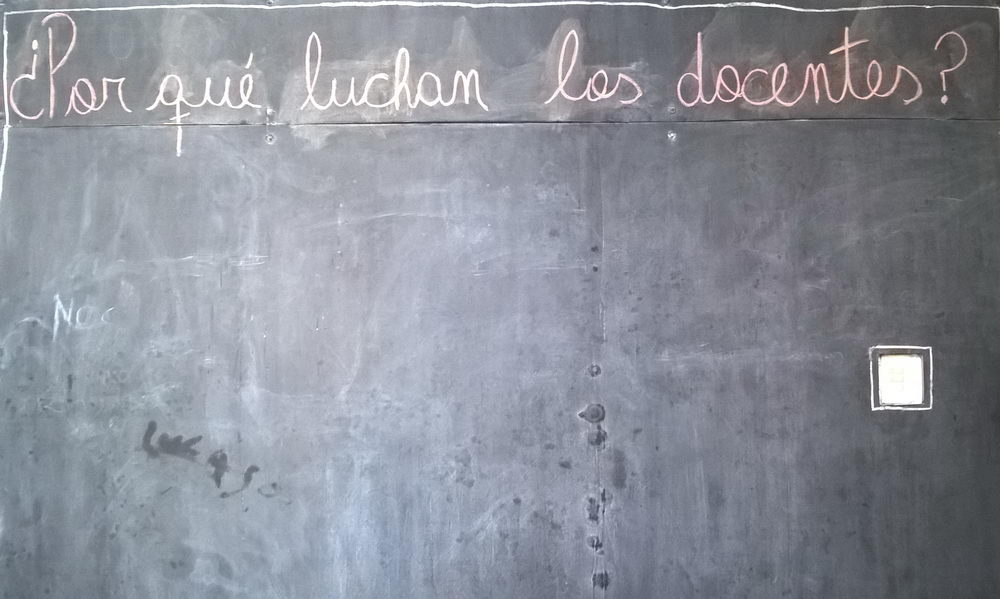 ¿Por qué luchan los docentes?